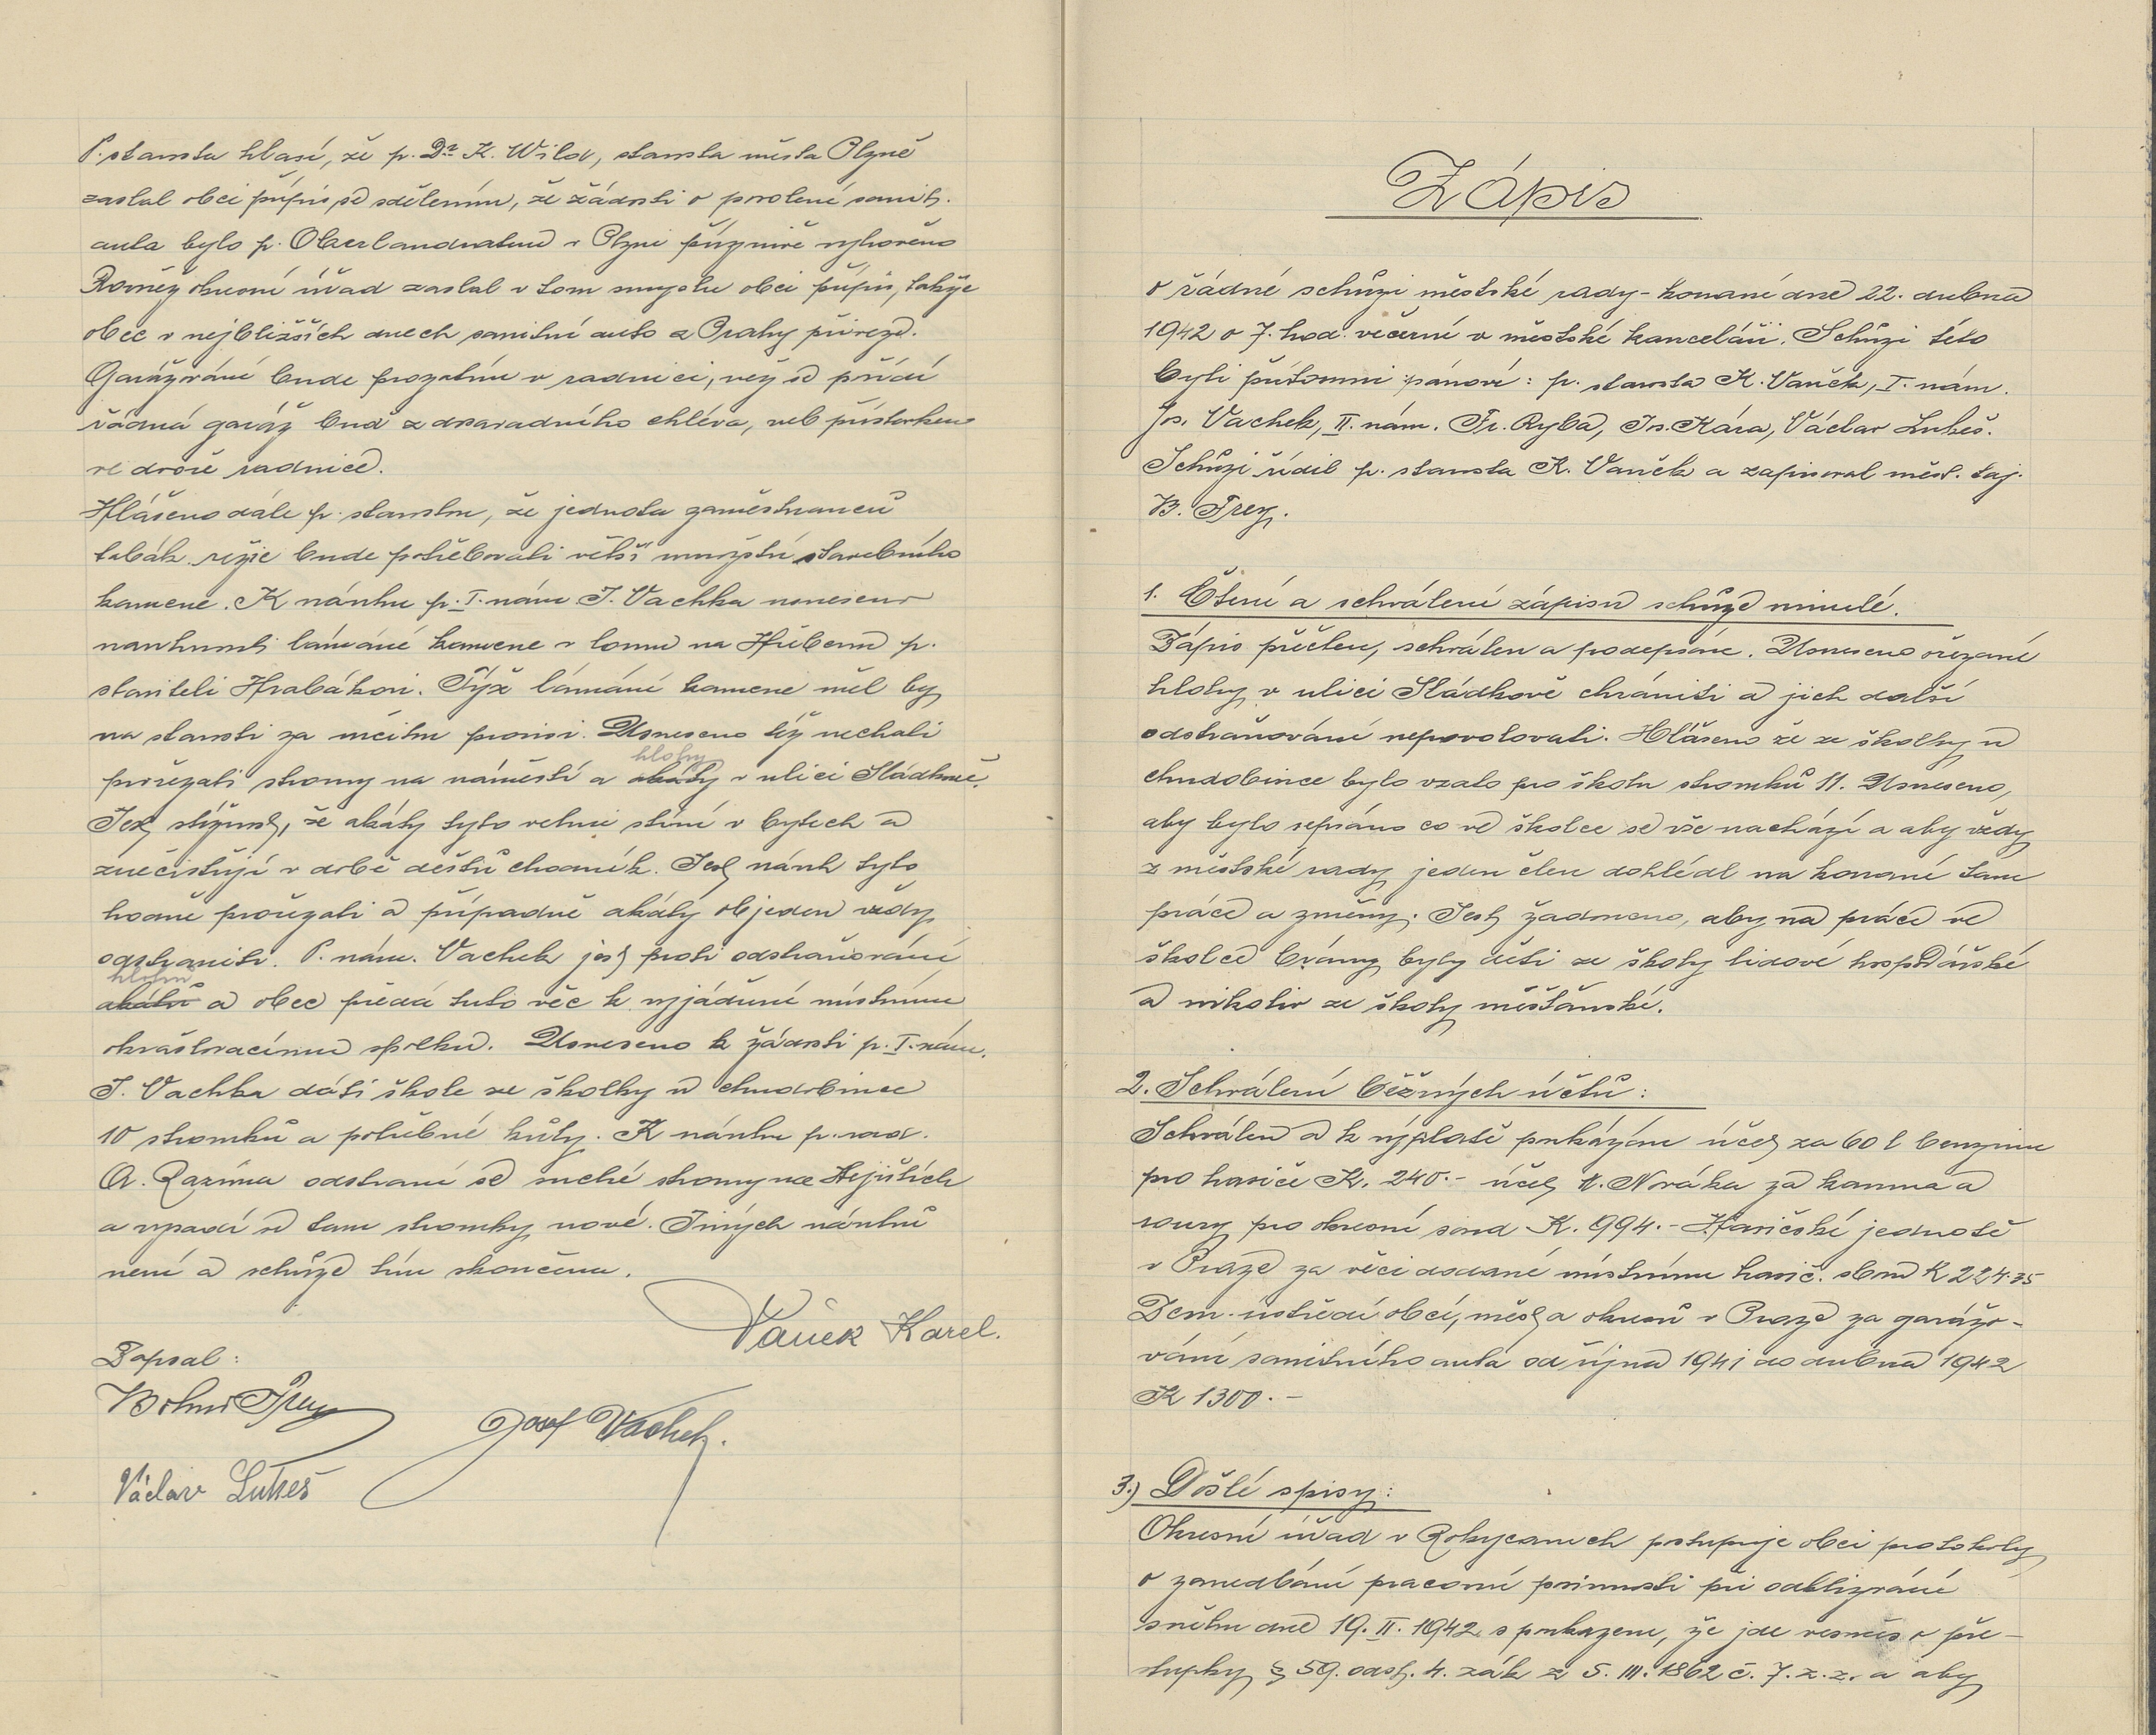 P. starosta hlasí, že p. Dr. K. Wild, starosta města Plzně
zaslal obci přípis se sdělením, že žádosti o povolení sanit.
auta bylo p. Oberlandratem v Plzni příznivě vyhověno
Rovněž okresní úřad zaslal v tom smyslu obci přípis, takže
obec v nejbližších dnech sanitní auto z Prahy přiveze.
Garážování bude prozatím v radnici, než se pořídí
řádná garáž buď z dosavadního chléva, neb přístavkem
ve dvoře radnice.
Hlášeno dále p. starostou, že jednota zaměstnanců
tabák. režie bude potřebovati větší množství stavebního
kamene. K návrhu p. I. nám. J. Vachka usneseno
navrhnouti lámání kamene v lomu na Hůrbeně p.
staviteli Hrabákovi. Týž lámání kamene měl by
na starosti za určitou provisi. Usneseno též nechati
hlohy
prořezati stromy na náměstí a akáty v ulici Sládkově.
Jest stížnost, že akáty tyto velmi stíní v bytech a
znečistují v době dešťů chodník. Jest návrh tyto
hodně prořezati a případně akáty objeden vždy
odstraniti. P. nám. Vachek jest proti odstraňování
hlohů
akátů a obec předá tuto věc k vyjádření místnímu
okrašlovacímu spolku. Usneseno k žádosti p. I. nám.
J. Vachka dáti škole ze školky u chudobince
10 stromků a potřebné kůly. K návrhu p. rad.
A. Razíma odstraní se suché stromy na Hejištích
a vysadí se tam stromky nové. Jiných návrhů
není a schůze tím skončena.
Vaněk Karel.
Zapsal:
Bohus Frey
Josef Vachek.
Václav Lukeš
Zápis
o řádné schůzi městské rady - konané dne 22. dubna
1942 o 7. hod. večerní v městské kanceláři. Schůzi této
byli přítomni pánové: p. starosta K. Vaněk, I. nám.
Jos. Vachek, II. nám. Fr. Ryba, Jos. Kára, Václav Lukeš.
Schůzi řídil p. starosta K. Vaněk a zapisoval měst. taj.
B. Frey.
1. Čtení a schválení zápisu schůze minulé.
Zápis přečten, schválen a podepsán. Usneseno ořezané
hlohy v ulici Sládkově chrániti a jich další
odstraňování nepovolovati. Hlášeno že ze školky u
chudobince bylo vzato pro školu stromků 11. Usneseno,
aby bylo sepsáno co ve školce se vše nachází a aby vždy
z městské rady jeden člen dohlédl na konané tam
práce a změny. Jest žádoucno, aby na práce ve
školce brány byly děti ze školy lidové hospodářské
a nikoliv ze školy měšťanské.
2. Schválení běžných účtů:
Schválen a k výplatě poukázán účet za 60 l benzinu
pro hasiče K. 240.- účet A. Nováka za kamna a
roury pro okresní soud K. 994.- Hasičské jednotě
v Praze za věci dodané místnímu hasič. sboru K 224.35
Zem. ústředí obcí, měst a okresů v Praze za garážo-
vání sanitního auta od října 1941 do dubna 1942
K 1300.-
3.) Došlé spisy:
Okresní úřad v Rokycanech postupuje obci protokoly
o zanedbání pracovní povinnosti při odklizování
sněhu dne 19. II. 1942 s poukazem, že jde vesměs o pře-
stupky § 59. odst. 4. zák z 5. III. 1862 č. 7. z. z. a aby